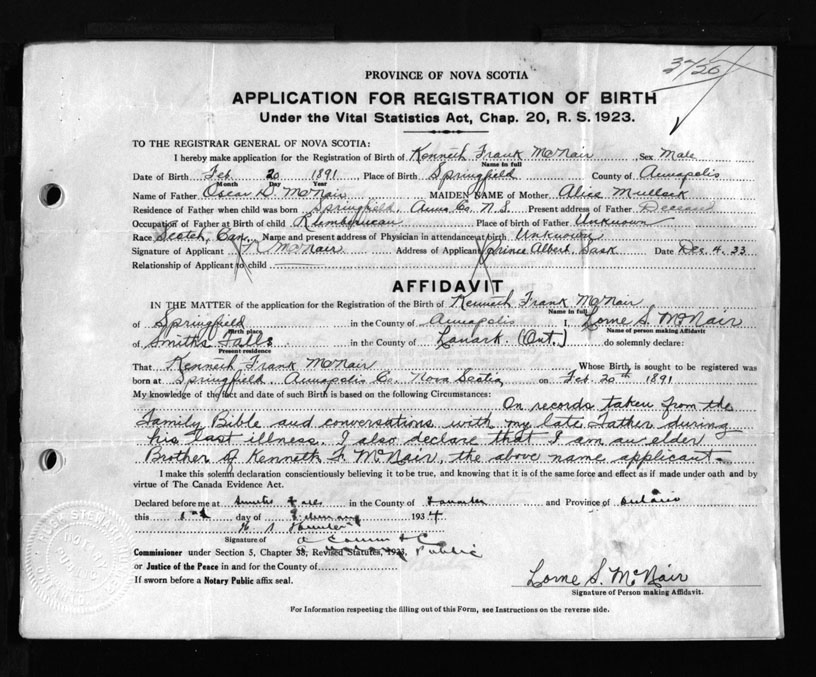 3720
PROVINCE OF NOVA SCOTIA
APPLICATION FOR REGISTRATION OF BIRTH
Under the Vital Statistics Act, Chap. 20, R. S. 1923.
TO THE REGISTRAR GENERAL OF NOVA SCOTIA:
I hereby make application for the Registration of Birth of Kenneth Frank McNair Sex Male
Name in full
Date of Birth Feb 20 1891 Place of Birth Springfield County of Annapolis
Month Day Year
Name of Father Oscar D. McNair MAIDEN NAME of Mother Alice
Residence of Father when child was born Springfield, Anna Co. N.S. Present address of Father Deceased
Occupation of Father at Birth of child Lumberman Place of birth of Father Unknown
Race Scotch, Can. Name and present address of Physician in attendance at birth Unknown
Signature of Applicant McNair Address of Applicant Prince Albert Sask Date Dec. 4. 33
Relationship of Applicant to child
AFFIDAVIT
IN THE MATTER of the application for the Registration of the Birth of Kenneth Frank McNair
Name in full
of Springfield in the County of Annapolis I, Lorne S. McNair
Birth place Name of person making Affidavit
of Smiths Falls in the County of Lanark. (Ont.) do solemnly declare:
Present residence
That Kenneth Frank McNair Whose Birth is sought to be registered was
born at Springfield, Annapolis Co. Nova Scotia on Feb. 20th 1891
My knowledge of the fact and date of such Birth is based on the following Circumstances:
On records taken from the
Family Bible and conversations with my late Father during
his last illness. I also declare that I am an elder
Brother of Kenneth F. McNair, the above name applicant
I make this solemn declaration conscientiously believing it to be true, and knowing that it is of the same force and effect as if made under oath and by
virtue of The Canada Evidence Act.
Declared before me at Smiths Falls in the County of Lanark and Province of Ontario
this day of February 1934
Signature of A Comm
Commissioner under Section 5, Chapter 38, Revised Statutes, 1923, Public
or Justice of the Peace in and for the County of
If sworn before a Notary Public affix seal.
Lorne S. McNair
Signature of Person making Affidavit.
For Information respecting the filling out of this Form, see Instructions on the reverse side.